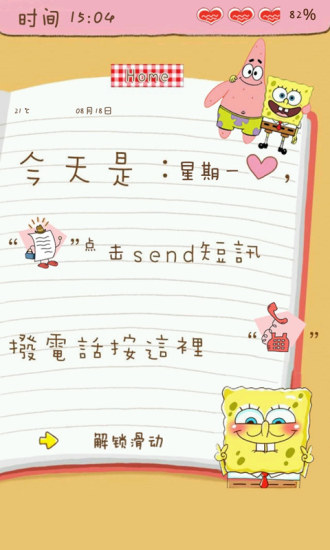 时间 15:04 82%
Home
21℃ 08月18日
今天是：星期一，
“ ”点击send短訊
撥電話按這裡“ ”
解锁滑动